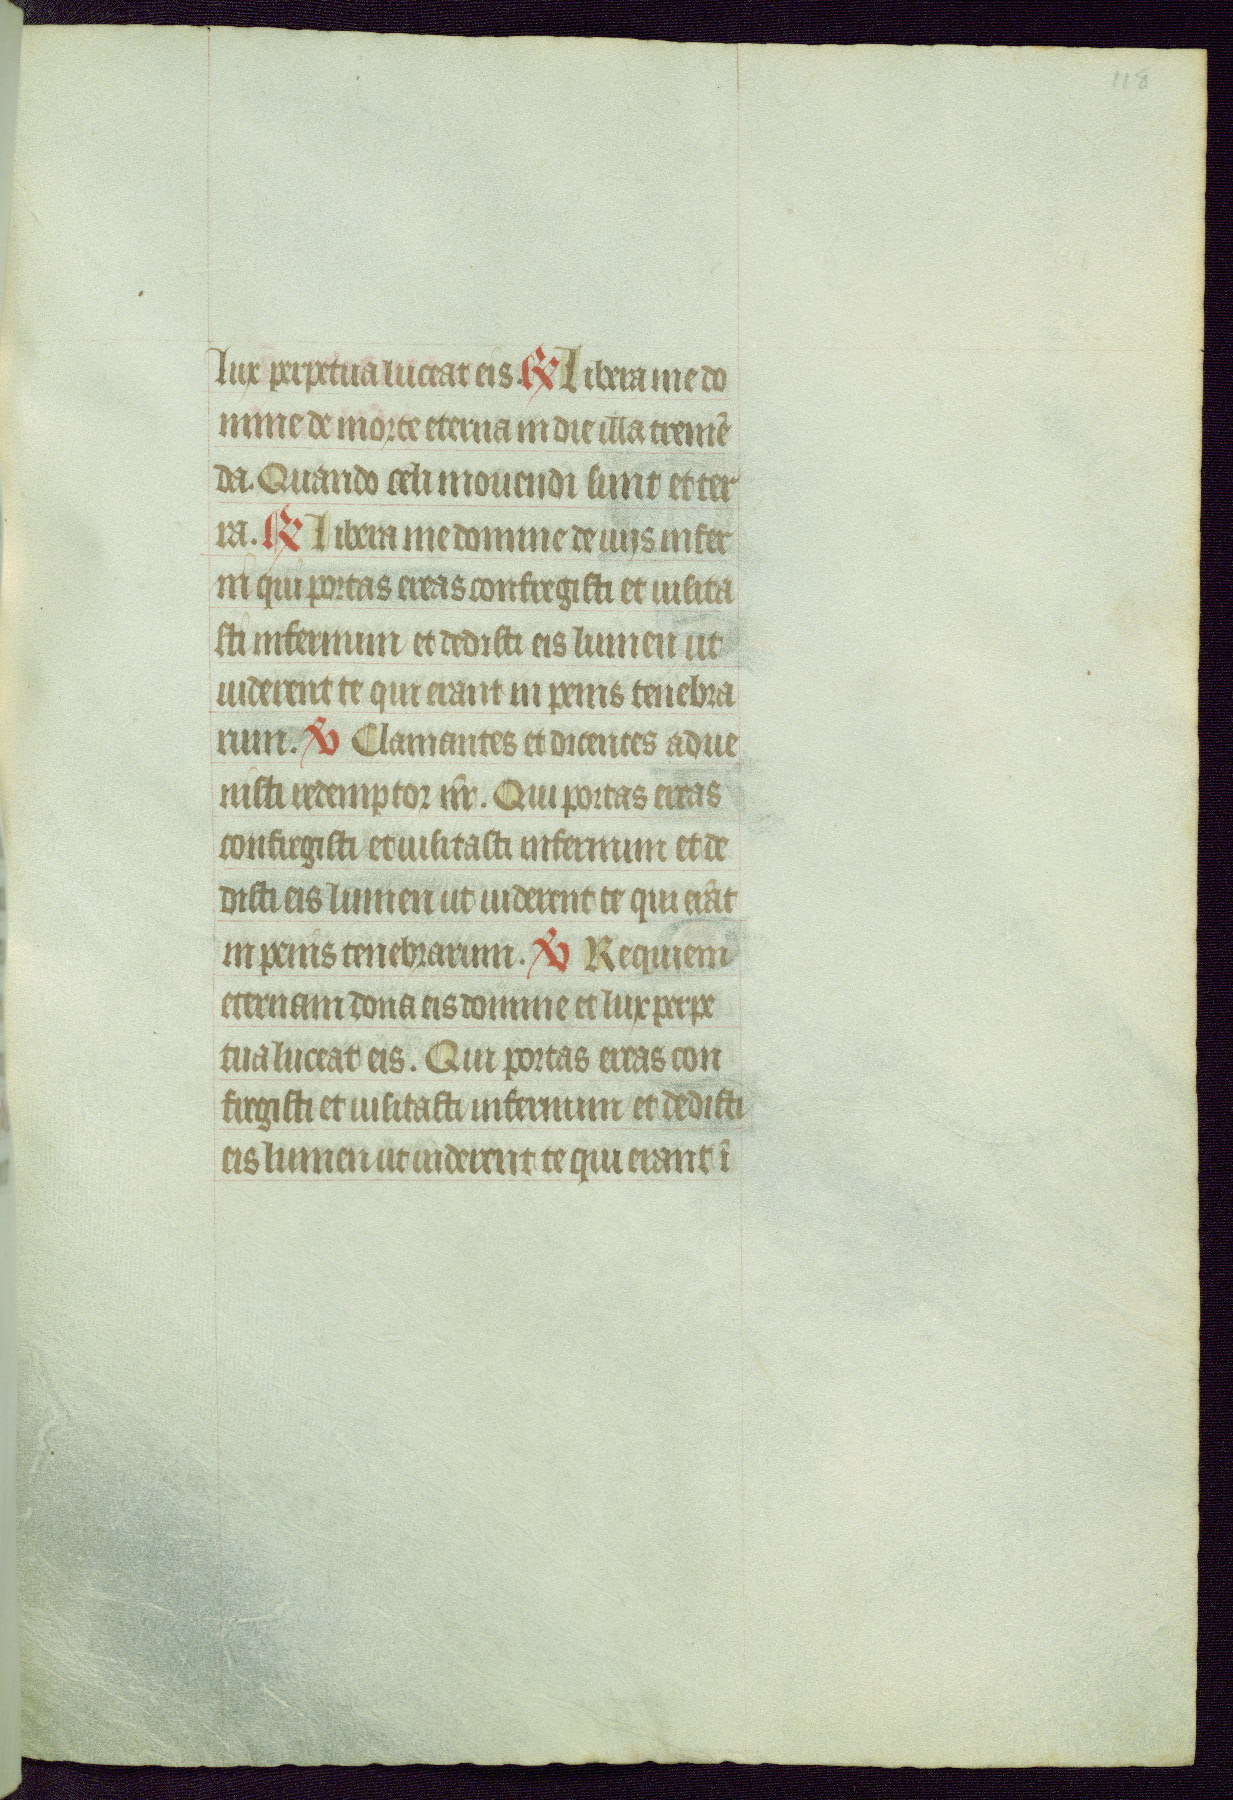 118
lux perpetua luceat eis. ℟ Libera me do
mine de morte eterna in die illa tremē
da. Quando celi mouendi sunt et ter
ra. ℟ Libera me domine de uijs infer
ni qui portas ereas confregisti et uisita
sti infernum et dedisti eis lumen ut
uiderent te qui erant in penis tenebra
rum. ℣ Clamantes et dicentes adue
nisti redemptor nr̄. Qui portas ereas
confregisti et uisitasti infernum et de
disti eis lumen ut uiderent te qui erāt
in penis tenebrarum. ℣ Requiem
eternam dona eis domine et lux perpe
tua luceat eis. Qui portas ereas con
fregisti et uisitasti infernum et dedisti
eis lumen ut uiderent te qui erant ī